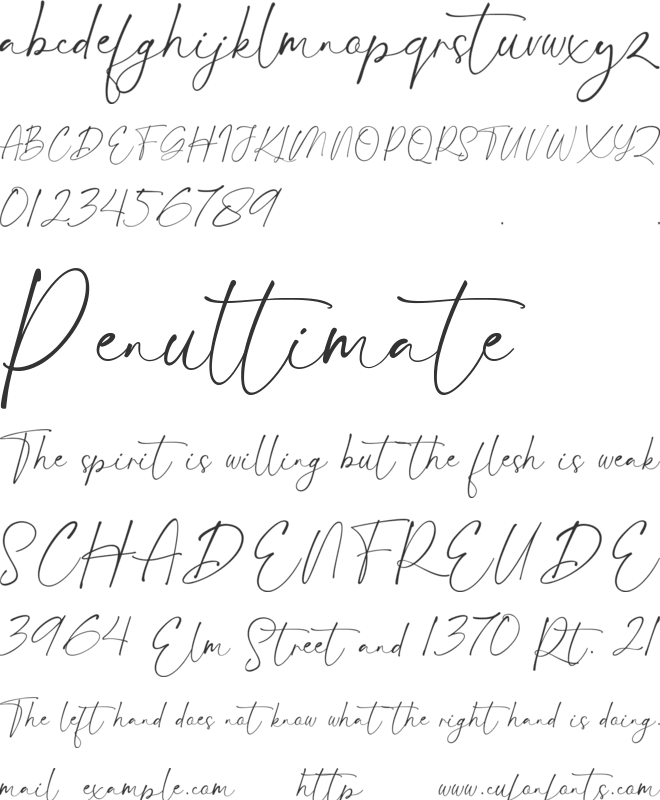 abcdefghijklmnopqrstuvwxyz
ABCDEFGHIJKLMNOPQRSTUVWXYZ
0123456789 . .
Penultimate
The spirit is willing but the flesh is weak
SCHADENFREUDE
3964 Elm Street and 1370 Rt. 21
The left hand does not know what the right hand is doing.
mail example.com http www.cufonfonts.com